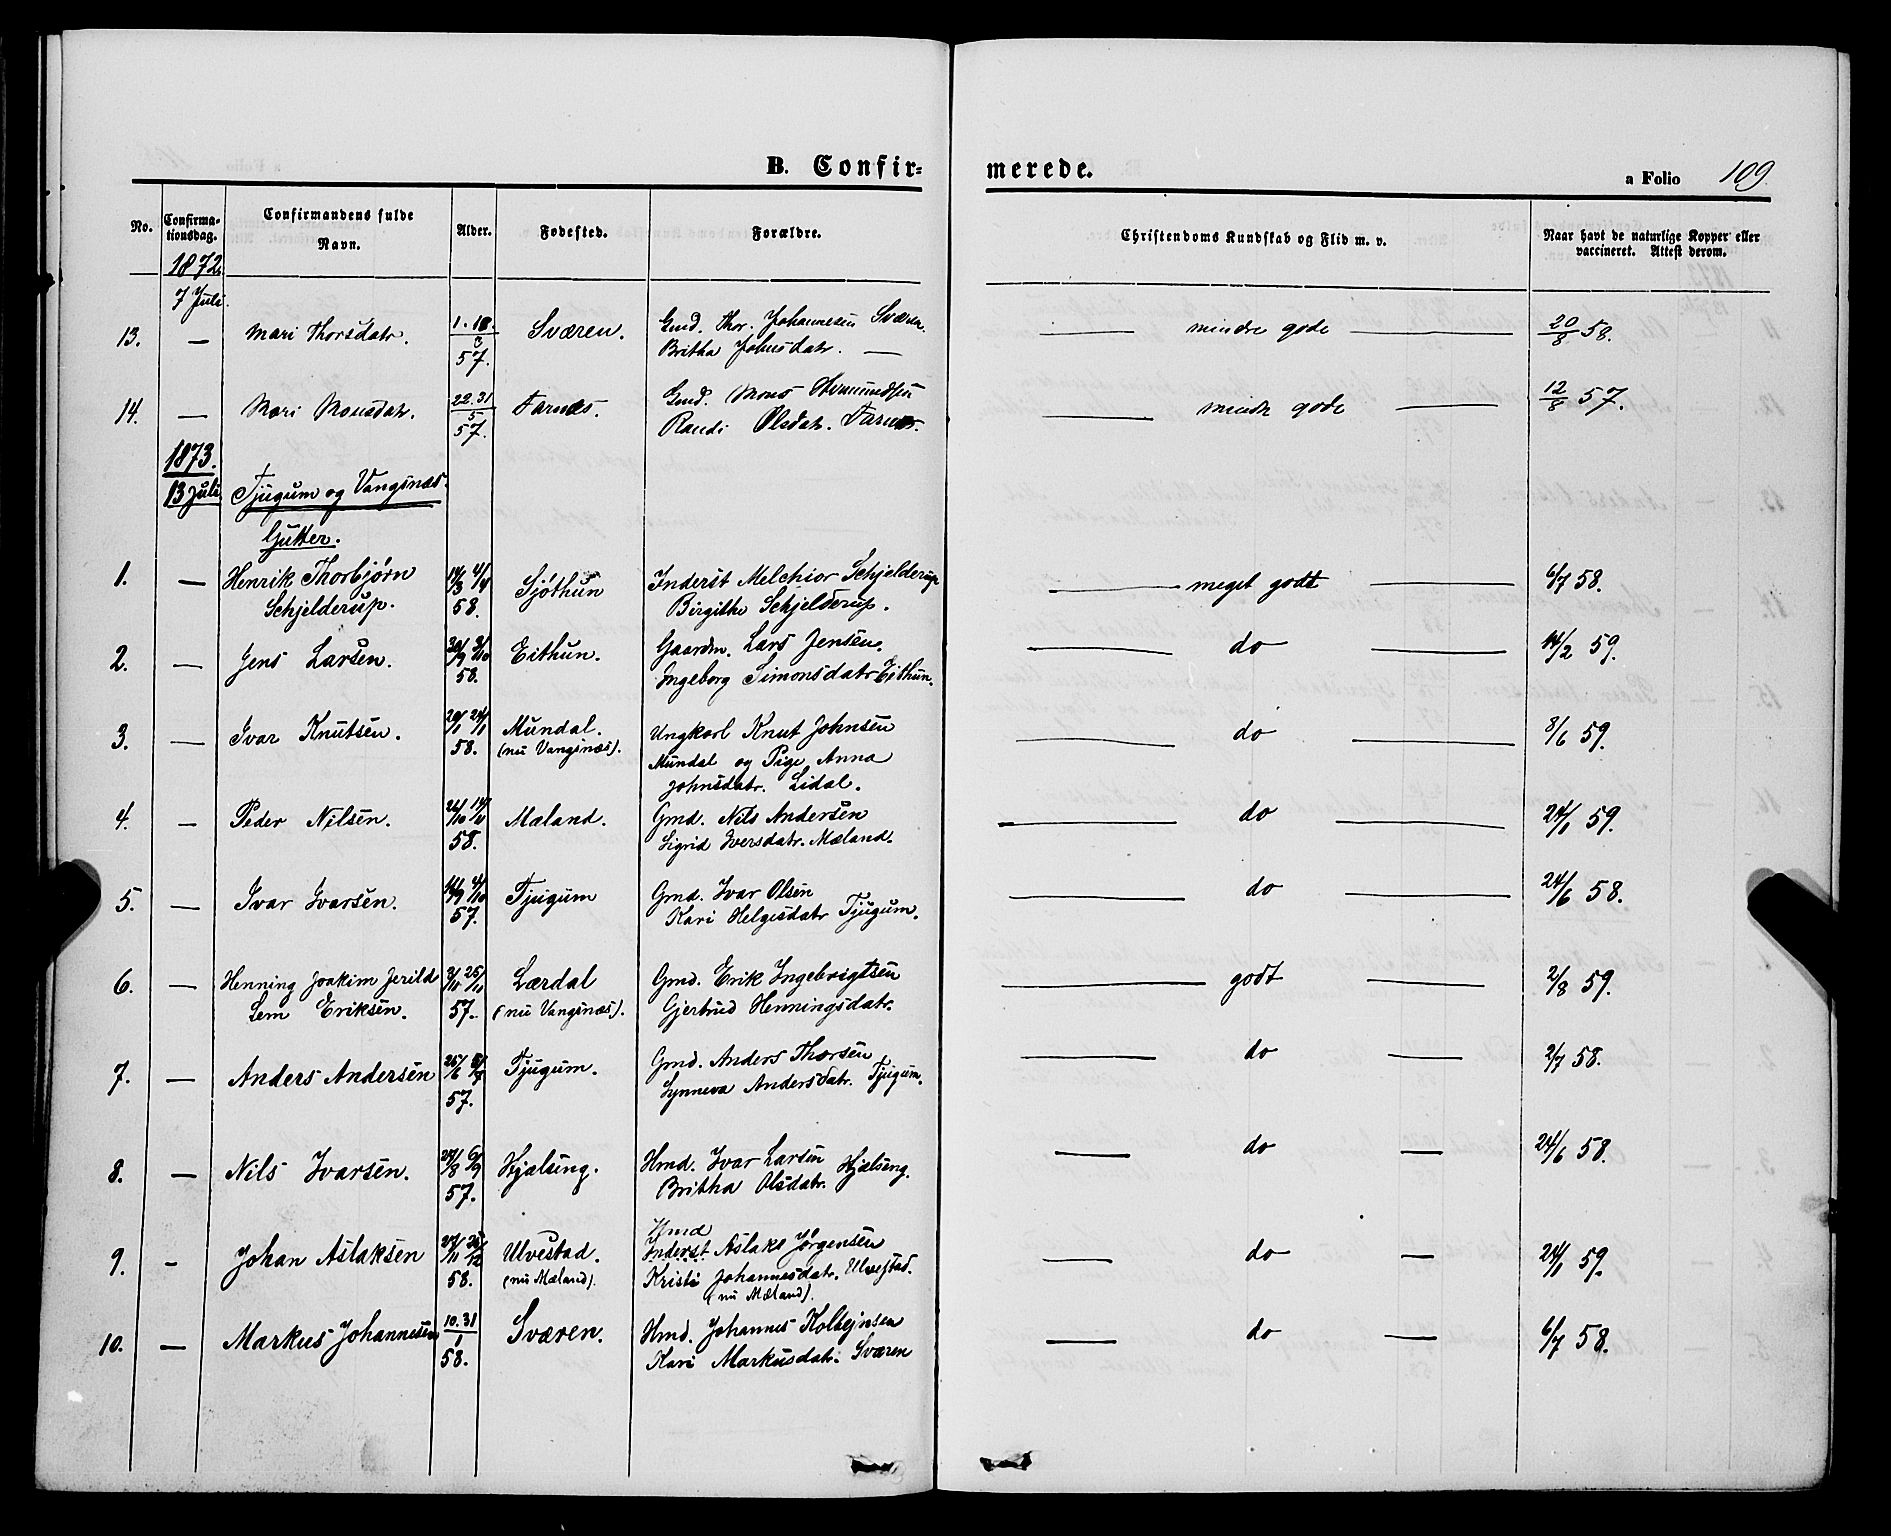 B. Confir-
merede.
a Folio 109.
No. Confirmationsdag. Confirmandens fulde Navn. Alder. Fødested. Forældre. Christendoms Kundskab og Flid m. v. Naar havt de naturlige Kopper eller vaccineret. Attest derom.
1872.
7 Juli.
13. — Mari Thorsdatr. 1. 18/3 57. Sværen. Gmd. Thor. Johannesen Sværen. — mindre gode — 20/8 58.
Britha Johnsdatr. —
14. — Mari Monsdatr. 22.31/5 57. Farnæs. Gmd. Mons Asmundsen — mindre gode — 12/8 57.
Randi Olsdatr. Farnæs.
1873.
13 Juli Tjugum og Vangsnæs.
Gutter.
1. — Henrik Thorbjørn 14/3 4/4 Sjøthun Inderst Melchior Schjelderup — meget godt — 6/7 58.
Schjelderup. 58. Birgithe Schjelderup.
2. — Jens Larsen. 30/9 3/10 Eithun. Gaardm. Lars Jensen. — do — 14/2 59.
58. Ingeborg Simonsdatr Eithun.
3. — Ivar Knutsen. 20/1 24/1 Mundal. Ungkarl Knut Johnsen — do — 8/6 59.
58. (nu Vangsnæs). Mundal og Pige Anna
Johnsdatr. Lidal.
4. — Peder Nilsen. Maland. Gmd. Nils Andersen — do — 24/1 59.
58. Sigrid Iversdatr. Mæland.
5. — Ivar Ivarsen. 14/9 4/10 Tjugum Gmd. Ivar Olsen — do — 24/6 58.
57. Kari Helgesdatr Tjugum.
6. — Henning Joakim Jerild 3/10 25/10 Lærdal Gmd. Erik Ingebrigtsen — godt — 2/8 59.
Lem Eriksen. 57. (nu Vangsnæs). Gjertrud Henningsdatr.
7. — Anders Andersen Tjugum. Gmd. Anders Thorsen — do — 2/7 58.
57. Synneva Andersdatr. Tjugum.
8. — Nils Ivarsen. 24/8 6/9 Hjælsing. Hmd. Ivar Larsen Hjelseng. — do — 24/6 58.
57. Britha Olsdatr.
Hmd
9. - Johan Aslaksen 24/11 26/12 Ulvestad. Inderst. Aslak Jørgensen — do — 24/1 59.
58. (nu Mæland). Kristi Johannesdatr. Ulvestad.
(nu Mæland).
10. — Markus Johannesen 10.31/1 Sværen. Hmd. Johannes Kolbejnsen — do — 6/7 58.
58. Kari Markusdatr. Sværen